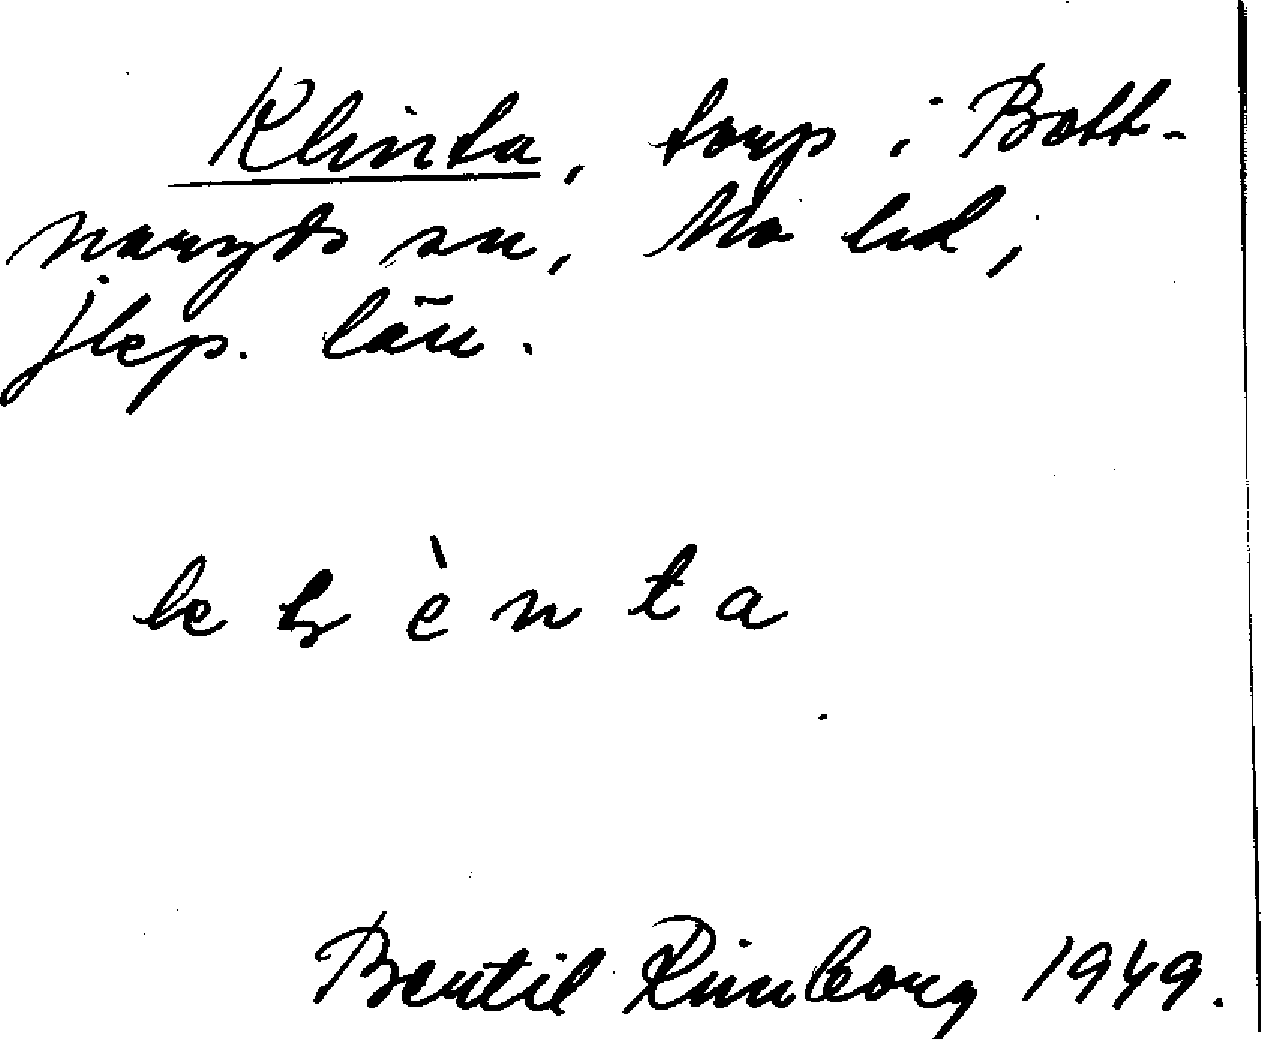 Klinta, torp i Bott-
naryds sn, Mo hd,
jkp. län.
k ɮ è n t a
Bertil Rimborg 1949.